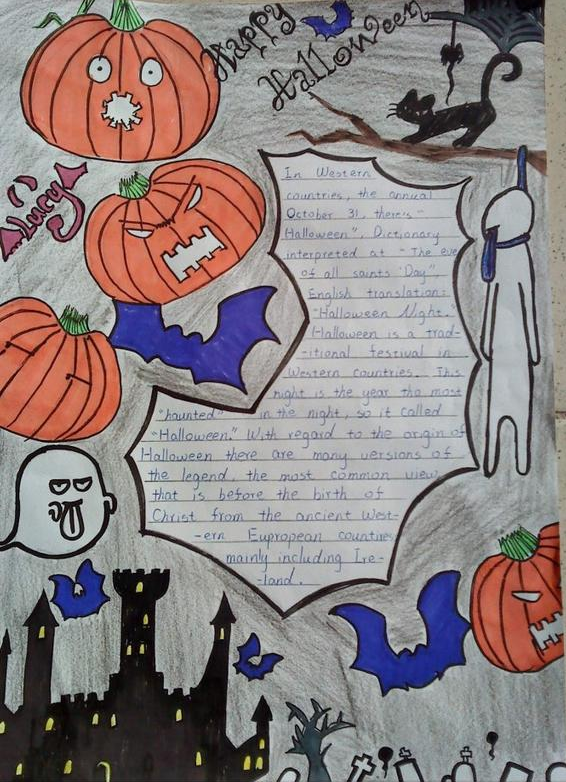 Happy
Halloween
Lucy
In Western
countries, the annual
October 31, there's "
Halloween", Dictionary
interpreted at "The eve
of all saints 'Day",
English translation:
"Halloween Night.
Halloween is a trad-
-itional festival in
Western countries. This
night is the year the most
"haunted" in the night, so it called
"Halloween." With regard to the origin of
Halloween there are many versions of
the legend, the most common view
that is before the birth of
Christ from the ancient West-
-ern Eupropean countries
mainly including Ire-
-land.